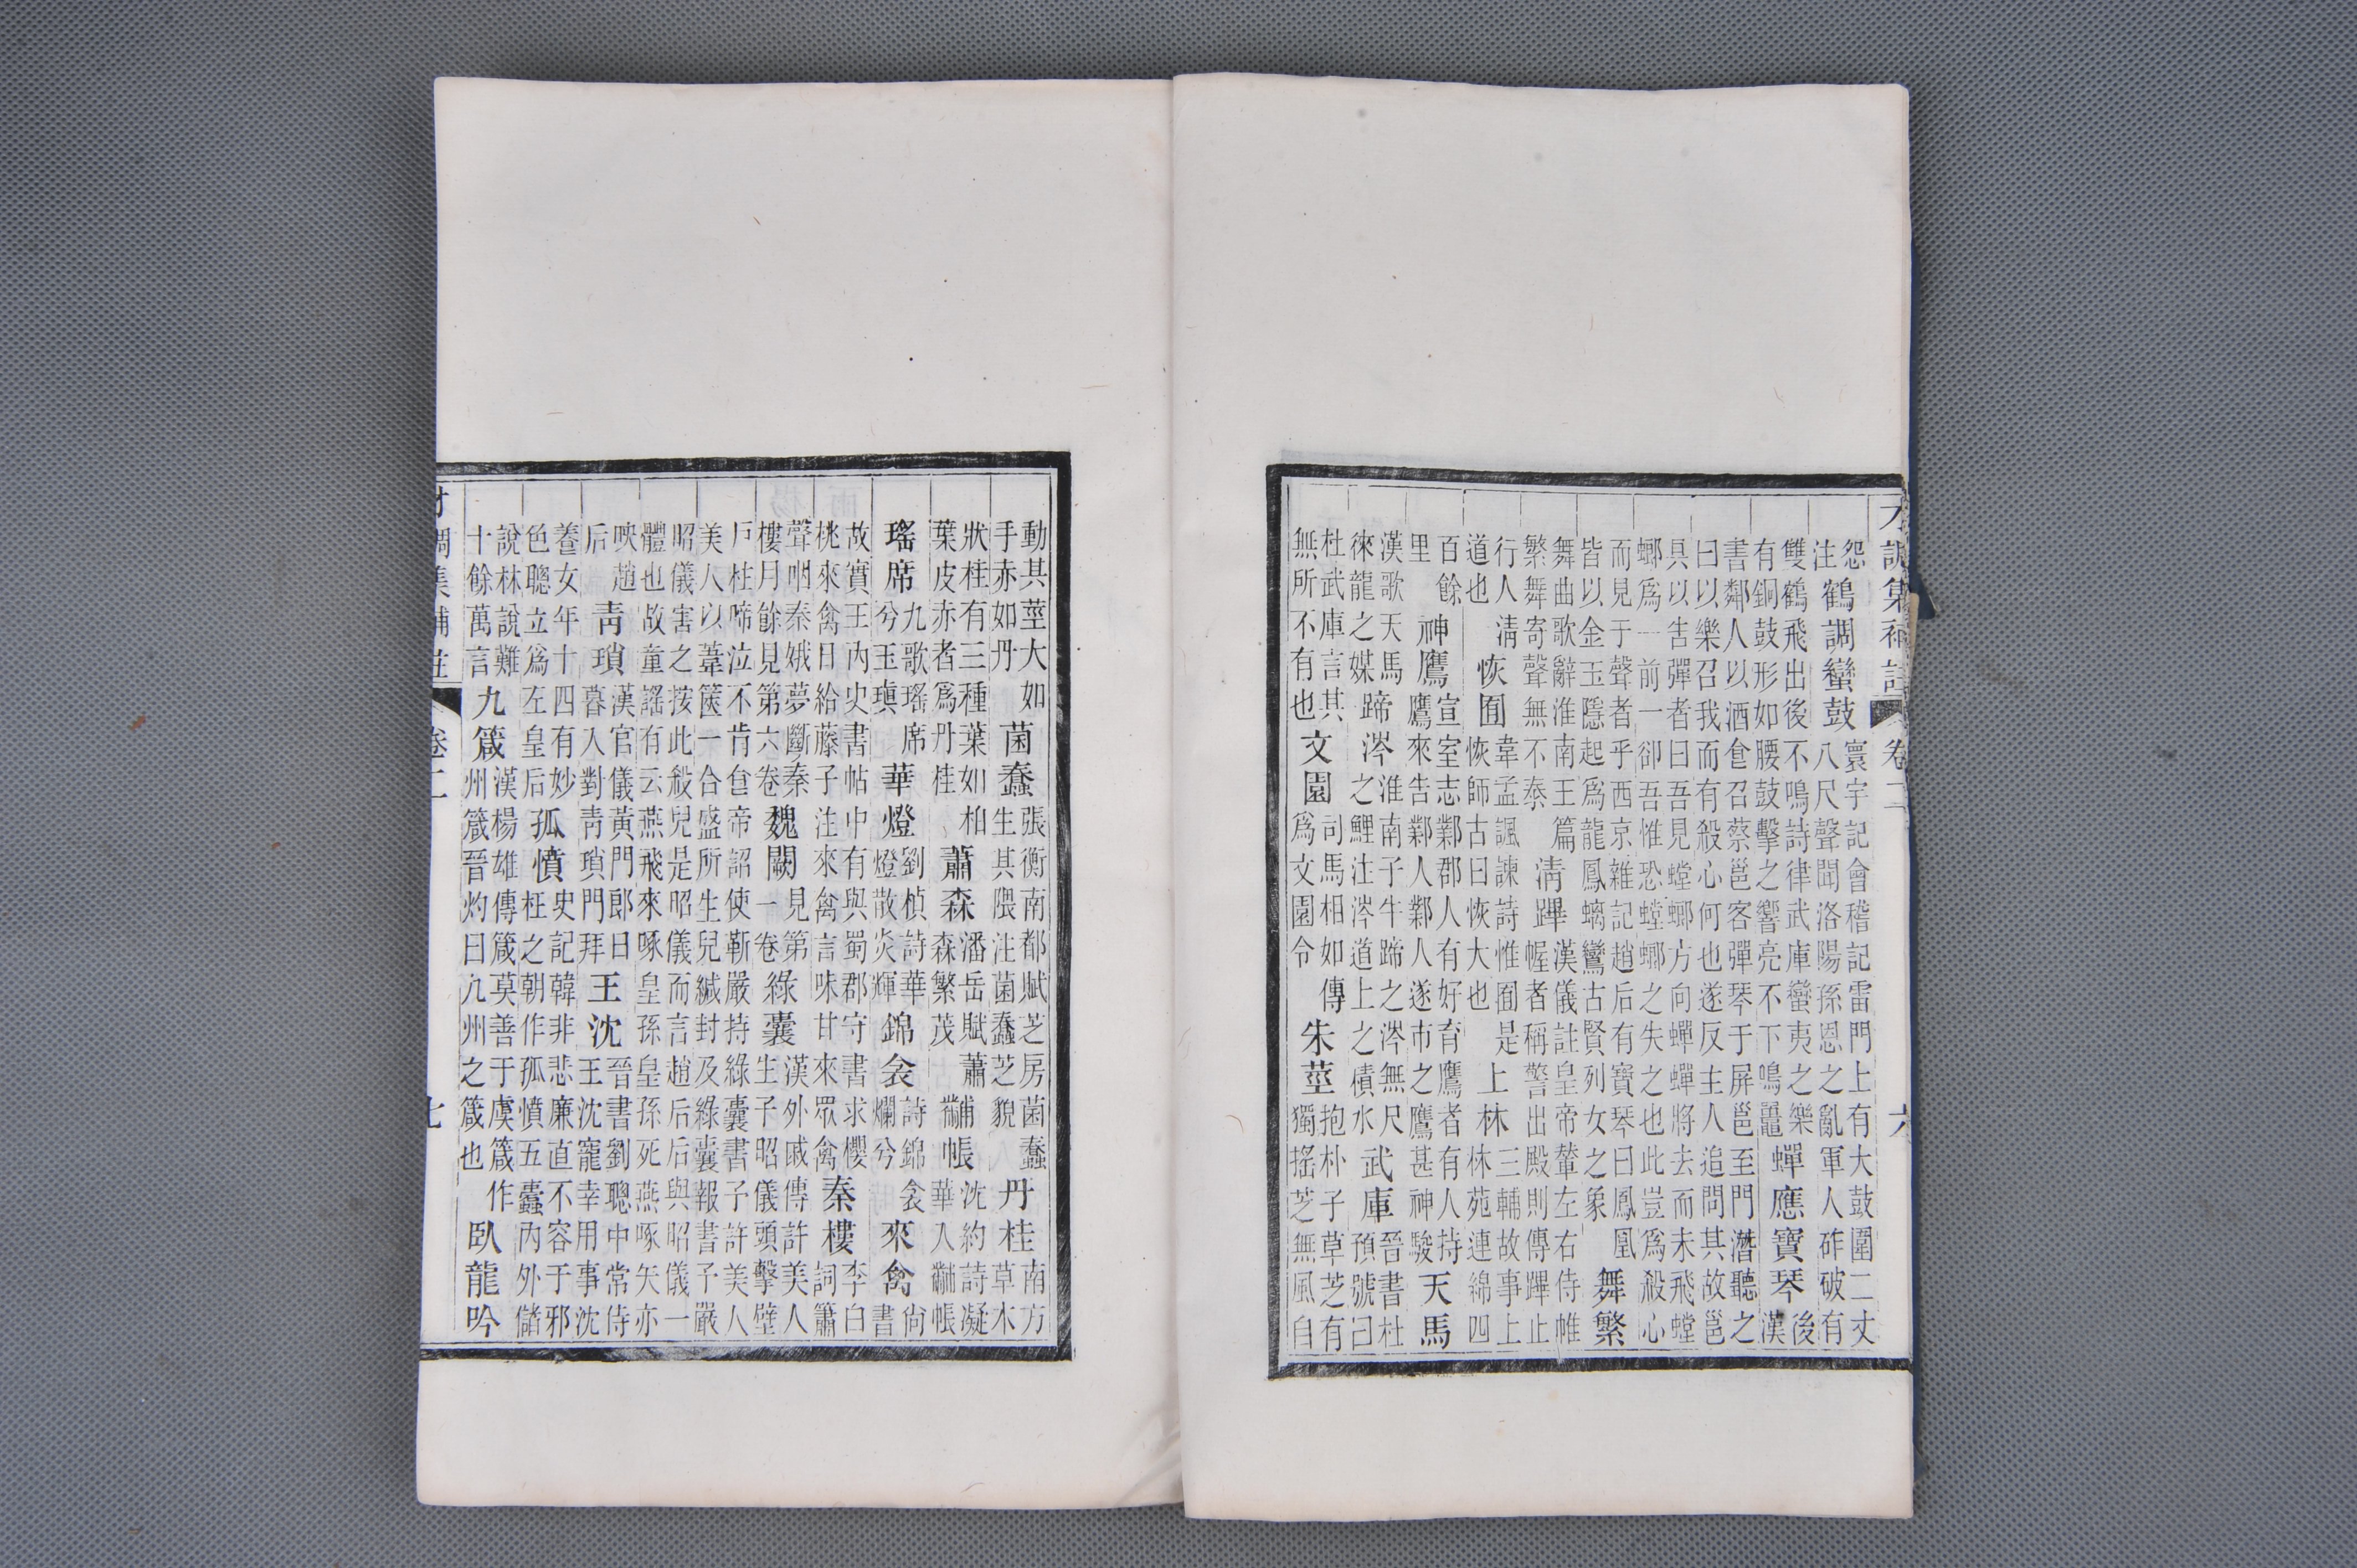 才調集補註 卷二 六
怨注鶴調蠻鼓寰宇記會稽記雷門上有大鼓圍二丈八尺聲聞洛陽孫恩之亂軍人砟破有
雙鶴飛出後不鳴詩律武庫蠻夷之樂有銅鼓形如腰鼓擊之響亮不下鳴鼉蟬應寶琴後漢
書鄰人以酒食召蔡邕客彈琴于屏邕至門潛聽之曰以樂召我而有殺心何也遂反主人追問其故邕
具以告彈者曰吾見螳螂方向蟬蟬將去而未飛螳螂爲一前一卻吾惟恐螳螂之失之也此豈爲殺心
而見于聲者乎西京雜記趙后有寶琴曰鳳凰皆以金玉隱起爲龍鳳螭鸞古賢列女之象舞繁
舞曲歌辭淮南王篇繁舞寄聲無不泰淸蹕漢儀註皇帝輦左右侍帷幄者稱警出殿則傳蹕止
行人淸道也恢囿韋孟諷諫詩惟囿是恢師古曰恢大也上林三輔故事上林苑連綿四
百餘里神鷹宣室志鄴郡人有好育鷹者有人持鷹來告鄴人鄴人遂市之鷹甚神駿天馬
漢歌天馬徠龍之媒蹄涔淮南子牛蹄之涔無尺之鯉注涔道上之積水武庫晉書杜預號曰
杜武庫言其無所不有也文園司馬相如傳爲文園令朱莖抱朴子草芝有獨搖芝無風自
動其莖大如手赤如丹菌蠢張衡南都賦芝房菌蠢生其隈注菌蠢芝貌丹桂南方草木
狀桂有三種葉如柏葉皮赤者爲丹桂蕭森潘岳賦蕭森繁茂黼帳沈約詩凝華入黼帳
瑤席九歌瑤席兮玉瑱華燈劉楨詩華燈散炎輝錦衾詩錦衾爛兮來禽尚書
故實王內史書帖中有與蜀郡守書求櫻桃來禽日給藤子注來禽言味甘來眾禽秦樓李白詞簫
聲咽秦娥夢斷秦樓月餘見第六卷魏闕見第一卷綠囊漢外戚傳許美人生子昭儀頭擊壁
戶柱啼泣不肯食帝詔使靳嚴持綠囊書予許美人美人以葦篋一合盛所生兒緘封及綠囊報書予嚴
昭儀害之按此殺兒是昭儀而言趙后后與昭儀一體也故童謠有云燕飛來啄皇孫皇孫死燕啄矢亦
映趙后靑瑣漢官儀黃門郎日暮入對靑瑣門拜王沈晉書劉聰中常侍王沈寵幸用事沈
養女年十四有妙色聰立爲左皇后孤憤史記韓非悲廉直不容于邪枉之朝作孤憤五蠹內外儲
說林說難十餘萬言九箴漢楊雄傳箴莫善于虞箴作州箴晉灼曰九州之箴也臥龍吟
才調集補註 卷二 七